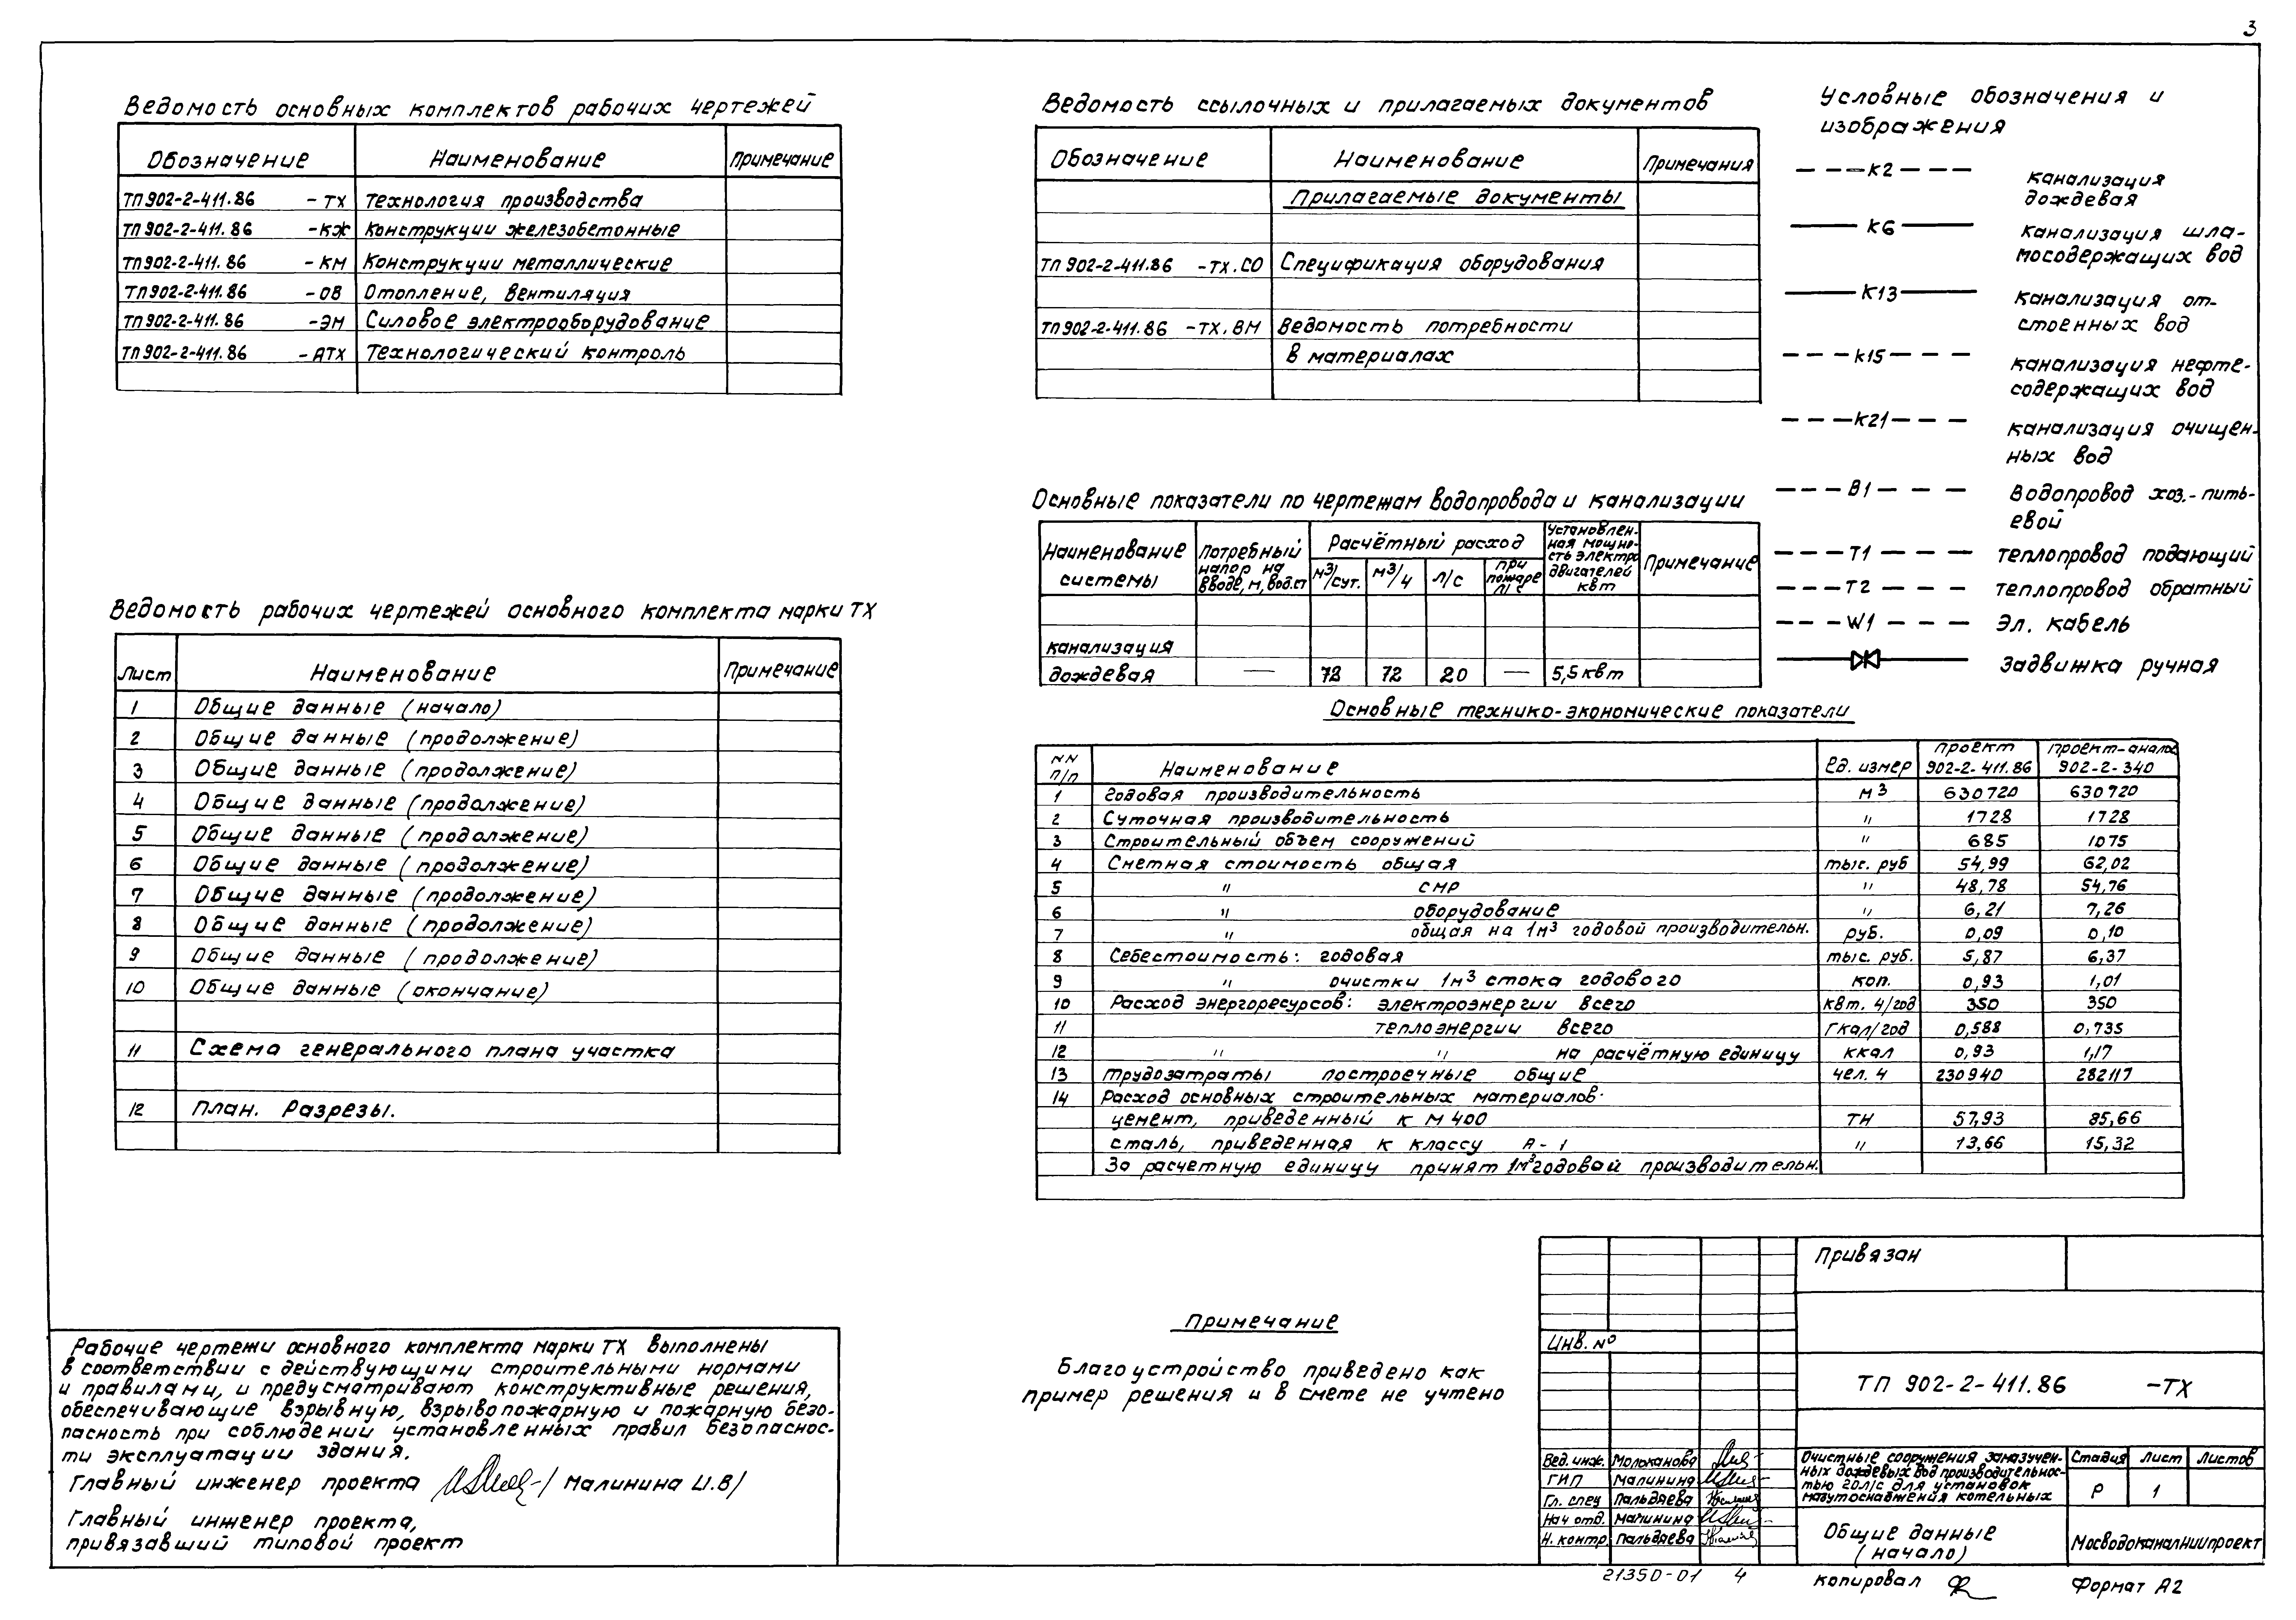 3
Ведомость основных комплектов рабочих чертежей
Обозначение Наименование Примечание
ТП902-2-411.86 -ТХ Технология производства
ТП902-2-411.86 -КЖ Конструкции железобетонные
ТП902-2-411.86 -КМ Конструкции металлические
ТП902-2-411.86 -ОВ Отопление, вентиляция
ТП902-2-411.86 -ЭМ Силовое электрооборудование
ТП902-2-411.86 -АТХ Технологический контроль
Ведомость рабочих чертежей основного комплекта марки ТХ
Лист Наименование Примечание
1 Общие данные (начало)
2 Общие данные (продолжение)
3 Общие данные (продолжение)
4 Общие данные (продолжение)
5 Общие данные (продолжение)
6 Общие данные (продолжение)
7 Общие данные (продолжение)
8 Общие данные (продолжение)
9 Общие данные (продолжение)
10 Общие данные (окончание)
11 Схема генерального плана участка
12 План. Разрезы.
Рабочие чертежи основного комплекта марки ТХ выполнены
в соответствии с действующими строительными нормами
и правилами, и предусматривают конструктивные решения,
обеспечивающие взрывную, взрывопожарную и пожарную безо-
пасность при соблюдении установленных правил безопаснос-
ти эксплуатации здания.
Главный инженер проекта /Малинина И.В/
Главный инженер проекта,
привязавший типовой проект
Ведомость ссылочных и прилагаемых документов
Обозначение Наименование Примечания
Прилагаемые документы
ТП902-2-411.86 -ТХ.СО Спецификация оборудования
ТП902-2-411.86 -ТХ.ВМ Ведомость потребности
в материалах
Основные показатели по чертежам водопровода и канализации
Наименование системы Потребный напор на вводе, м, вод.ст Расчётный расход Установлен-ная мощно-сть электро двигателей квт Примечание
м3/сут. м3/ч л/с при пожаре л/с
канализация
дождевая — 72 72 20 — 5,5квт
Основные технико-экономические показатели
NN п/п Наименование ед. измер проект 902-2-411.86 проект-аналог 902-2-340
1 Годовая производительность м3 630720 630720
2 Суточная производительность " 1728 1728
3 Строительный объем сооружений " 685 1075
4 Сметная стоимость общая тыс. руб 54,99 62,02
5 " СМР " 48,78 54,76
6 " оборудование " 6,21 7,26
7 " общая на 1м3 годовой производительн. руб. 0,09 0,10
8 Себестоимость: годовая тыс. руб. 5,87 6,37
9 " очистки 1м3 стока годового коп. 0,93 1,01
10 Расход энергоресурсов: электроэнергии всего квт. ч/год 350 350
11 теплоэнергии всего гкал/год 0,588 0,735
12 " " на расчётную единицу ккал 0,93 1,17
13 Трудозатраты построечные общие чел. ч 230940 282117
14 Расход основных строительных материалов.
цемент, приведенный к М 400 тн 57,93 85,66
сталь, приведенная к классу А-1 " 13,66 15,32
За расчетную единицу принят 1м3 годовой производительн.
Условные обозначения и
изображения
К2 канализация
дождевая
К6 канализация шла-
мосодержащих вод
К13 канализация от-
стоенных вод
К15 канализация нефте-
содержащих вод
К21 канализация очищен-
ных вод
В1 водопровод хоз.-пить-
евой
Т1 теплопровод подающий
Т2 теплопровод обратный
W1 Эл. кабель
Задвижка ручная
Примечание
Благоустройство приведено как
пример решения и в смете не учтено
Привязан
Инв. №
ТП 902-2-411.86 -ТХ
Вед.инж. Молоканова
ГИП Малинина
Гл. спец Пальдяева
Нач отд. Малинина
Н. контр. Пальдяева
Очистные сооружения замазучен-
ных дождевых вод производительнос-
тью 20л/с для установок
мазутоснабжения котельных
Стадия Лист Листов
Р 1
Общие данные
(начало)
Мосводоканалниипроект
21350-01 4
копировал
Формат А2